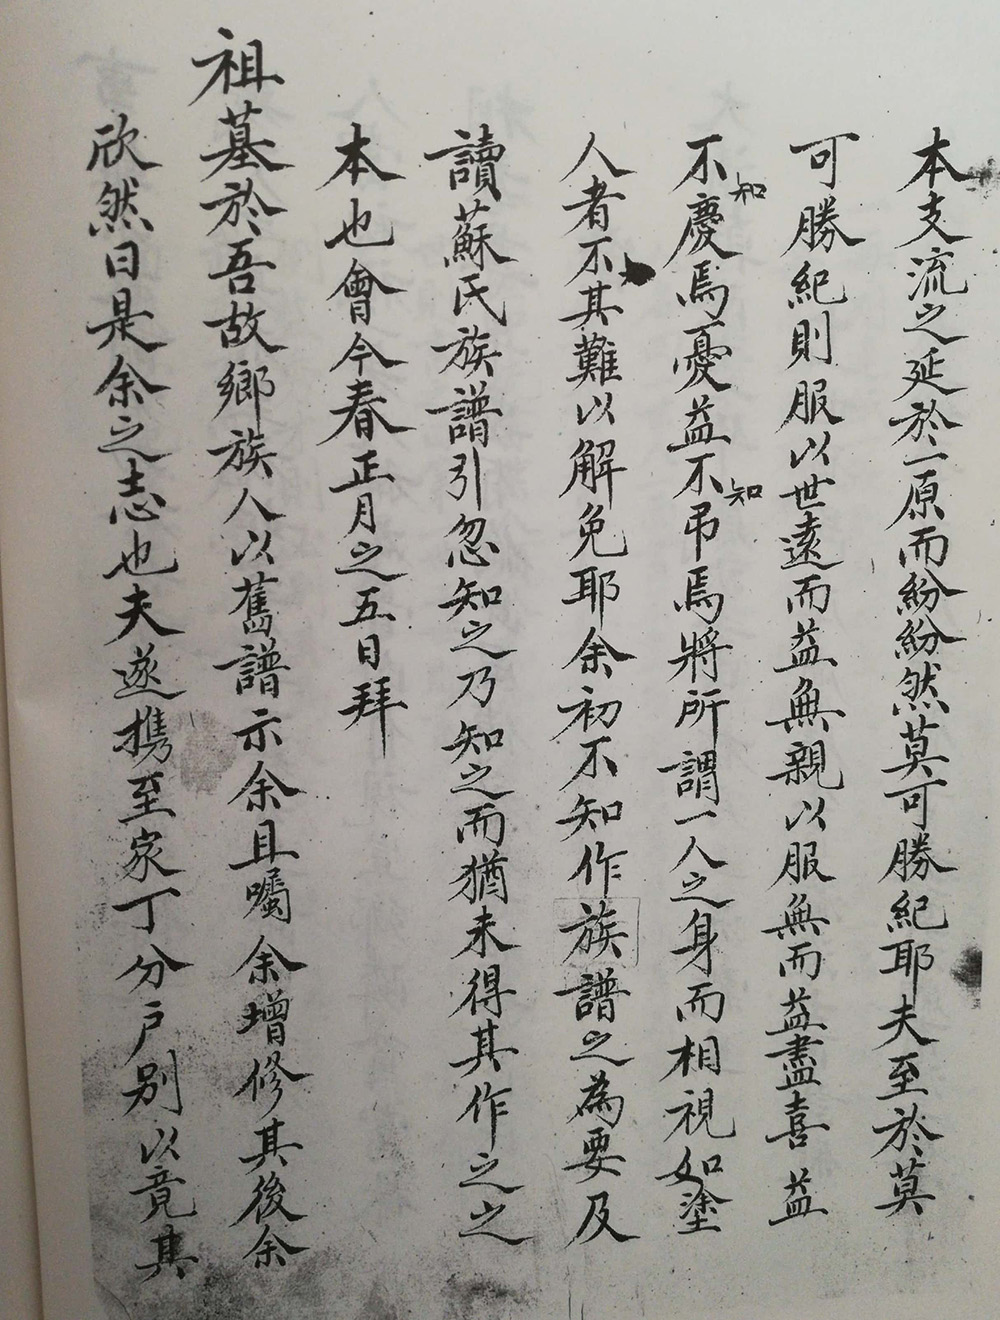 本支流之延於一原而紛紛然莫可勝紀耶夫至於莫
可勝紀則服以世遠而益無親以服無而益盡喜益
不知慶焉憂益不知弔焉將所謂一人之身而相視如塗
人者不其難以解免耶余初不知作族譜之為要及
讀蘇氏族譜引忽知之乃知之而猶未得其作之之
本也會今春正月之五日拜
祖墓於吾故鄉族人以舊譜示余且囑余增修其後余
欣然曰是余之志也夫遂携至家丁分户别以竟其